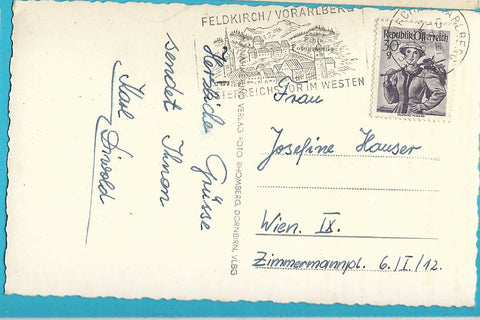 FELDKIRCH/VORARLBERG
ÖSTERREICHS TOR IM WESTEN
Republik Österreich
30
g
Herzliche Grüsse
sendet Ihnen
Karl
VERLAG FOTO RHOMBERG, DORNBIRN, VLBG
Frau
Josefine Hauser
Wien. IX.
Zimmermannpl. 6/I/12.